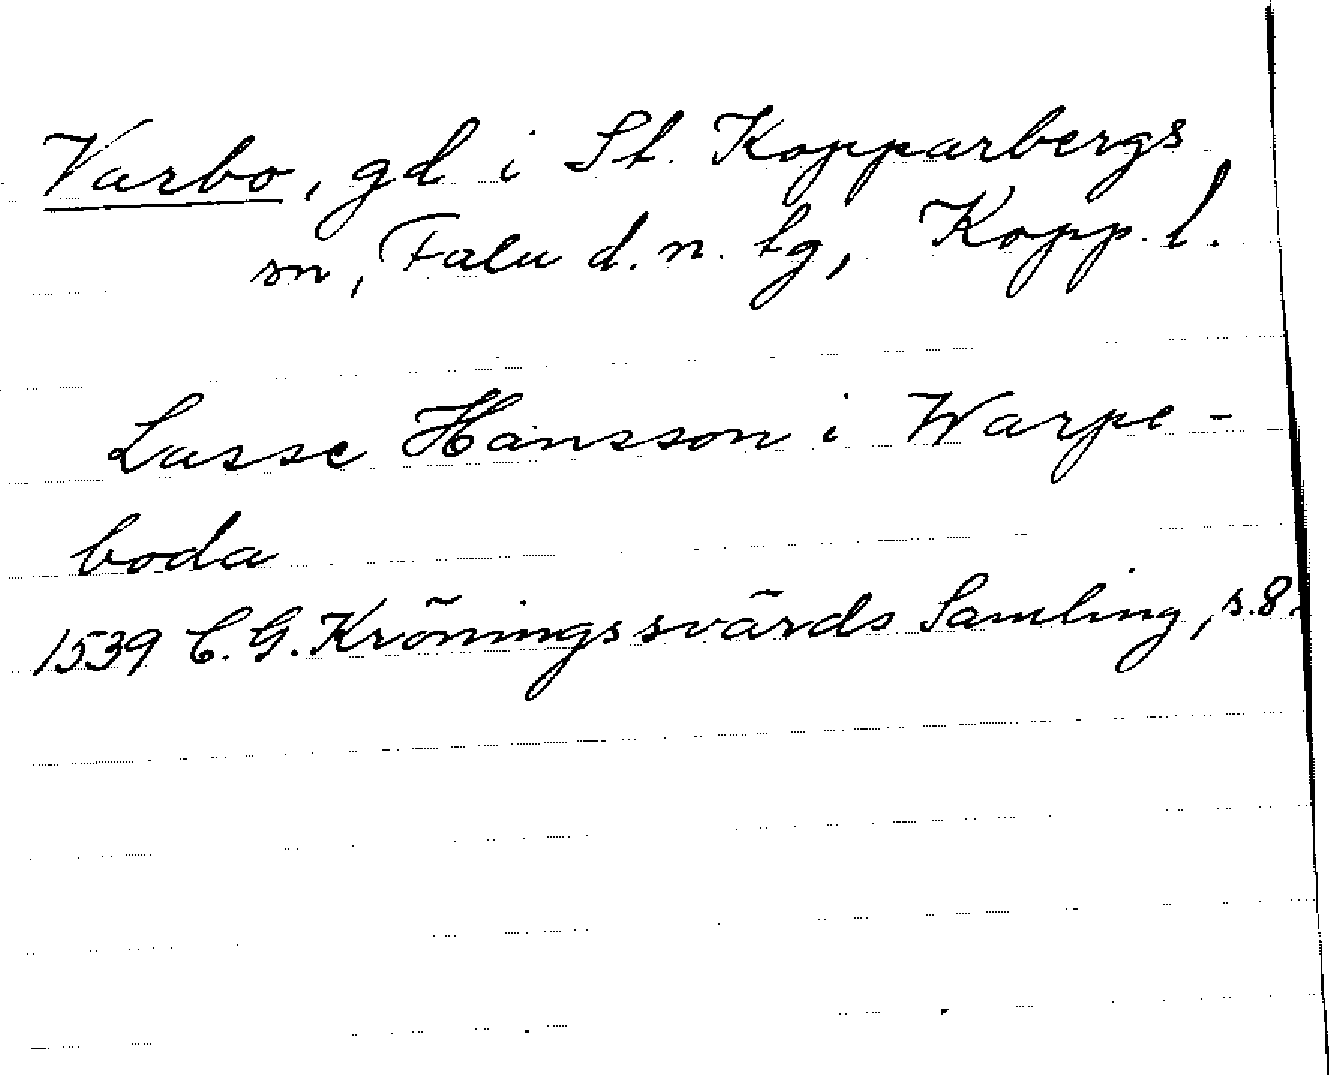 Varbo, gd i St. Kopparbergs
sn, Falu d.n. tg, Kopp. l.
Lasse Hansson i Warpe-
boda
1539 C. G. Kröningssvärds Samling, s. 8.